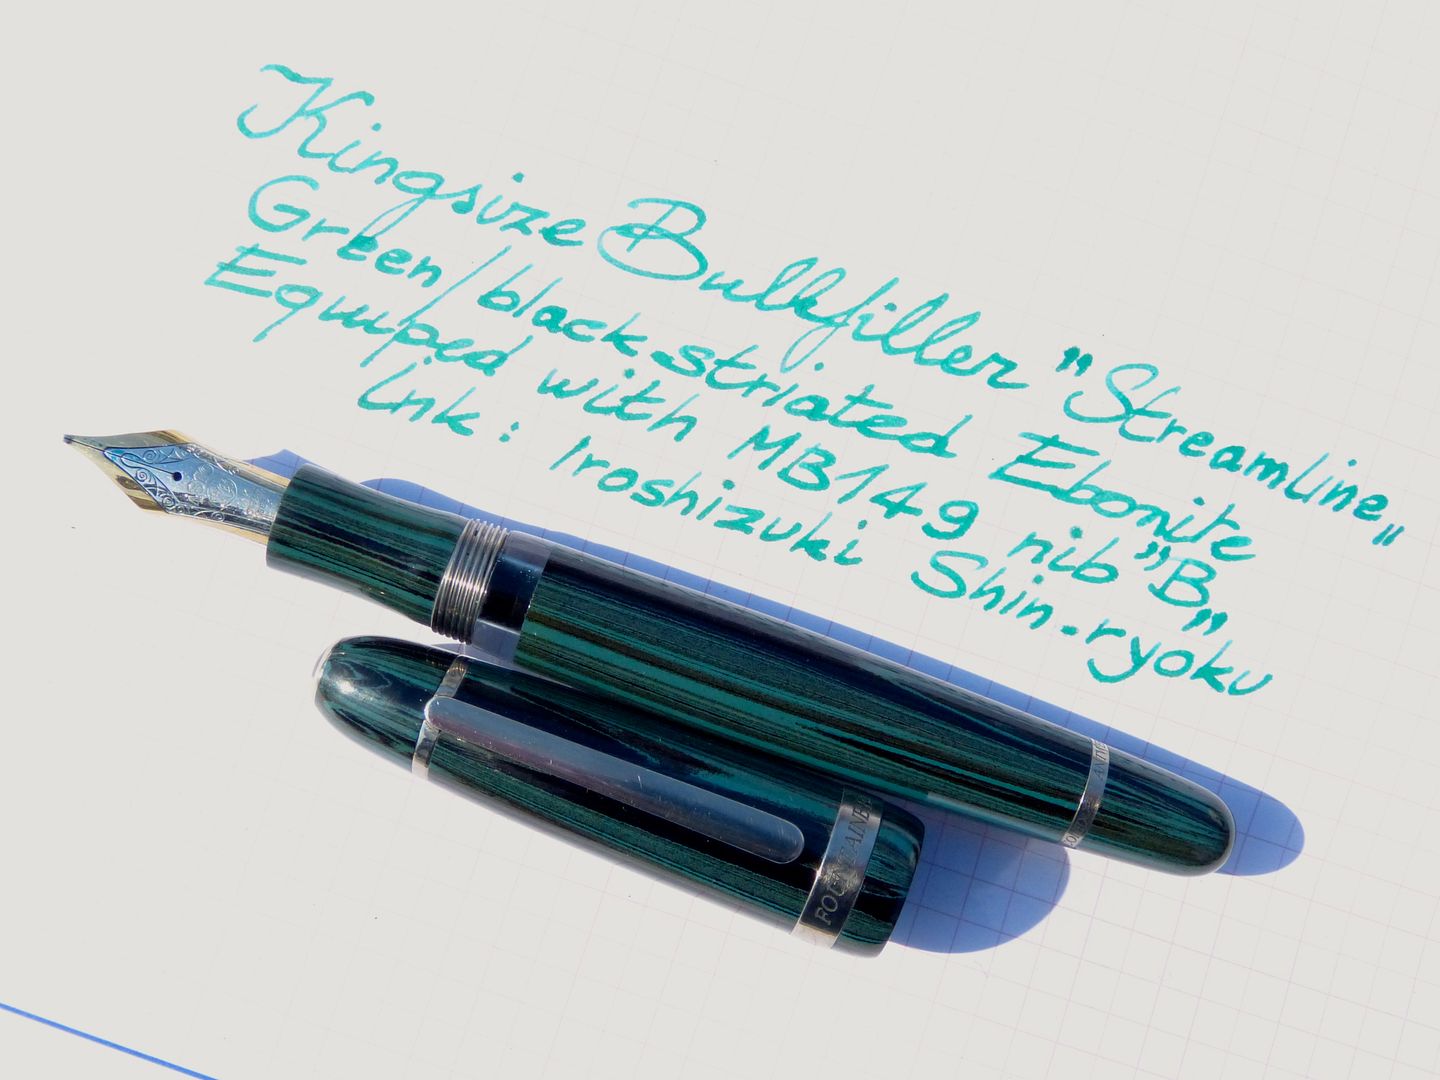 Kingsize Bulkfiller "Streamline„
Green/black striated Ebonite
Equiped with MB149 nib "B„
Ink: Iroshizuki Shin-ryoku